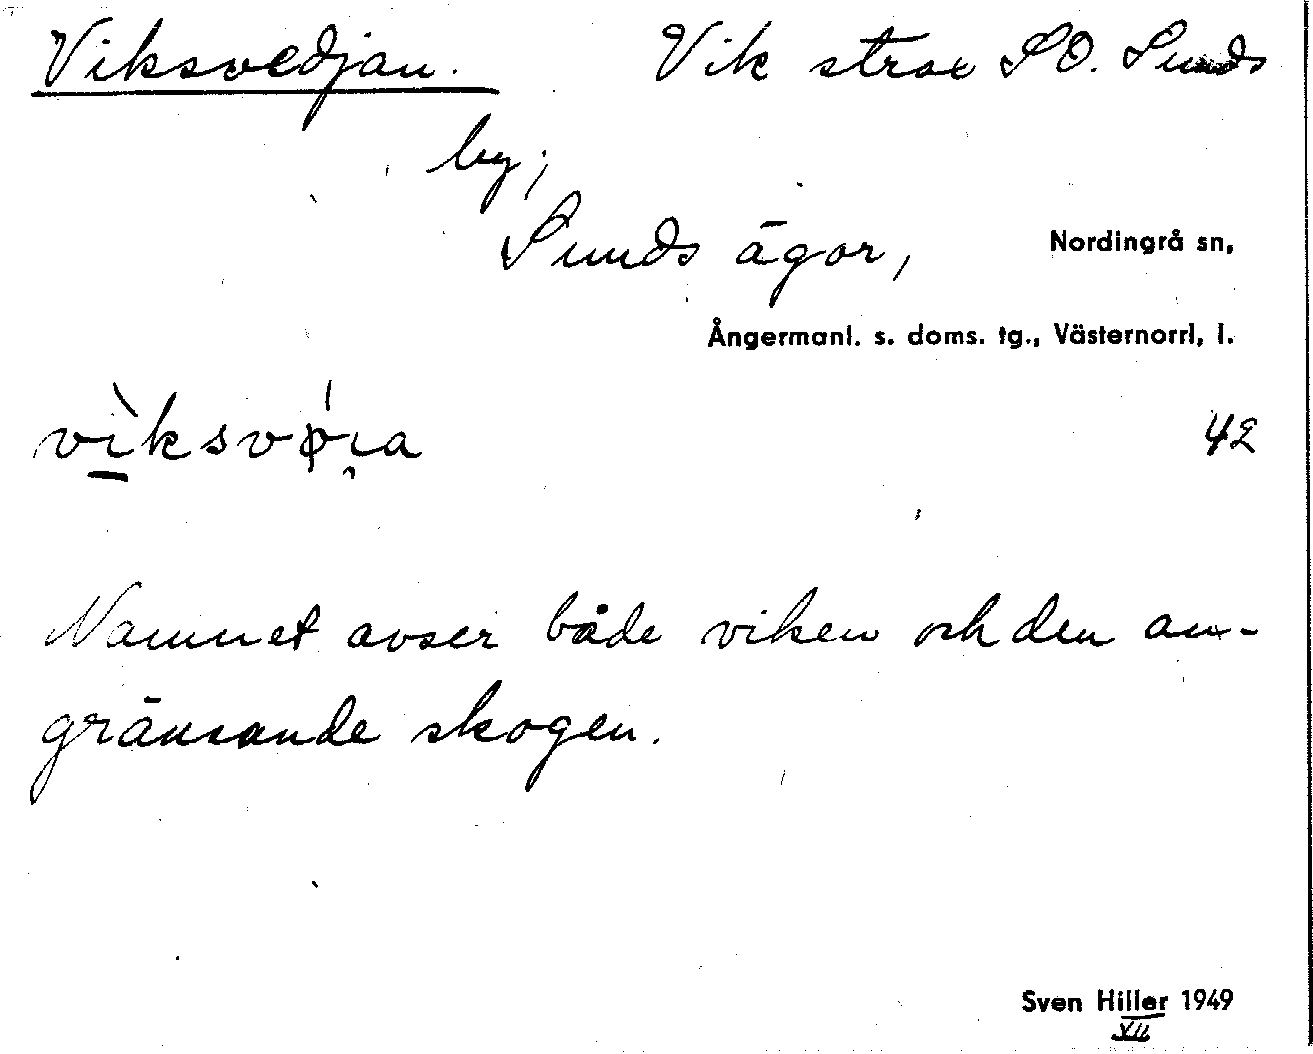 Viksvedjan. Vik strax SO. Sunds
by;
Sunds ägor, Nordingrå sn,
Ångermanl. s. doms. tg., Västernorrl, l.
vìksvǿi̯a 42
Namnet avser både viken och den an-
gränsande skogen.
Sven Hiller 1949
XII